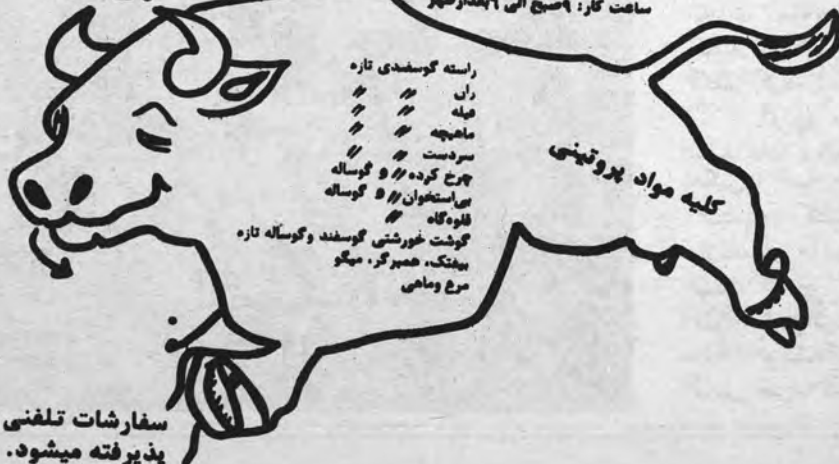 ساعت کار: ۹صبح الی ۹بعدازظهر
راسته گوسفندی تازه
ران 〃 〃
فیله 〃 〃
ماهیچه 〃 〃
سردست 〃 〃
چرخ کرده 〃 و گوساله
بی‌استخوان 〃 و گوساله
قلوه‌گاه 〃
گوشت خورشتی گوسفند وگوساله تازه
بیفتک، همبرگر، میگو
مرغ وماهی
کلیه مواد پروتینی
سفارشات تلفنی
پذیرفته میشود.